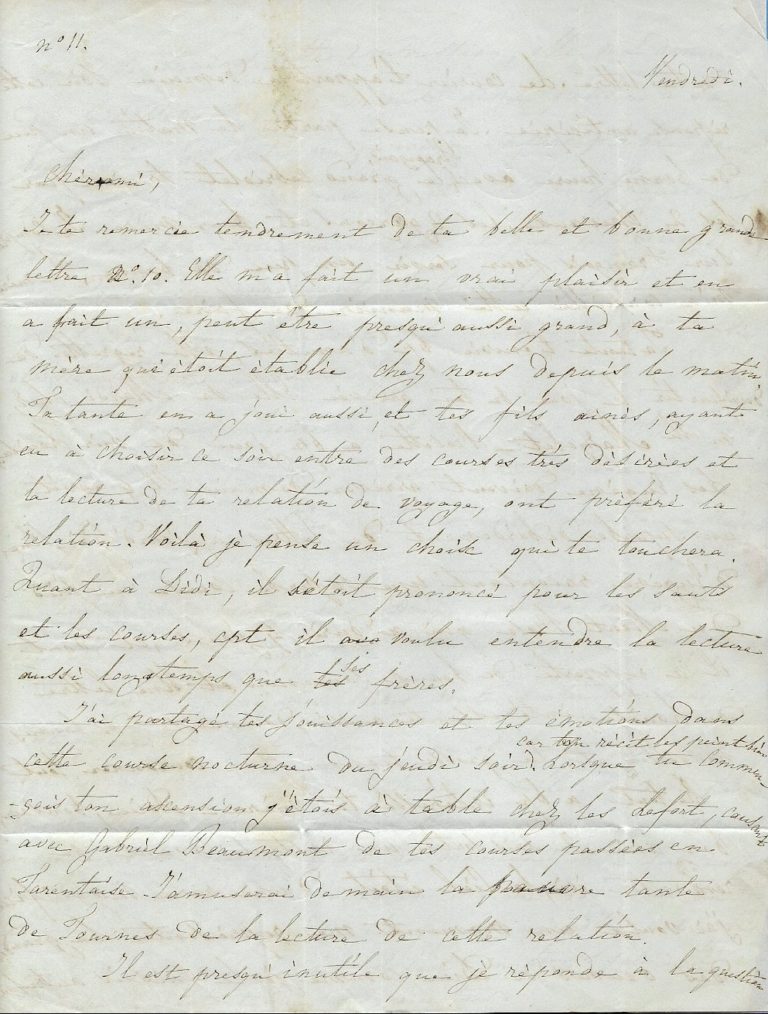 n° 11.
Vendredi.
Cher ami,
Je te remercie tendrement de ta belle et bonne grande
lettre N°. 10. Elle m'a fait un vrai plaisir et en
a fait un, peut être presqu'aussi grand, à ta
mère qui étoit établie chez nous depuis le matin.
Ta tante en a joui aussi, et tes fils ainés, ayant
eu à choisir ce soir entre des courses très désirées et
la lecture de ta relation de voyage, ont préféré la
relation. Voilà je pense un choix qui te touchera.
Quant à Didi, il s'étoit prononcé pour les sauts
et les courses, cpt il a voulu entendre la lecture
aussi longtemps que ses frères.
J'ai partagé tes jouissances et tes émotions dans
car ton récit les peint bien
cette course nocturne du jeudi soir. Lorsque tu commen-
-çois ton ascension j'étois à table chez les Lefort, causant
avec Gabriel Beaumont de tes courses passées en
Tarentaise. J'amuserai demain la pauvre tante
de Tournes de la lecture de cette relation.
Il est presqu'inutile que je réponde à la question